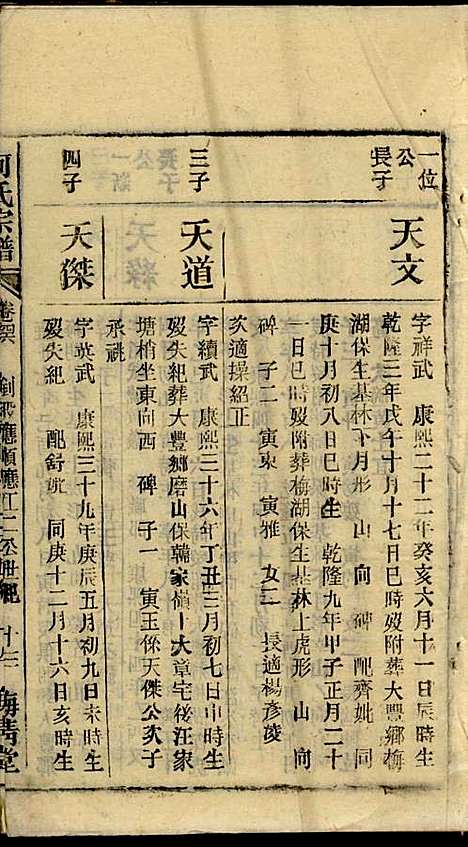 一位
公
長子
天文
字祥武 康熙二十二年癸亥六月十一日辰時生
乾隆三年戊午十月十七日巳時歿附葬大豐鄉梅
湖保生基林下月形 山 向 碑 配齊妣 同
庚十月初八日巳時生 乾隆九年甲子正月二十
一日巳時歿附葬梅湖保生基林上虎形 山 向
碑 子二 寅東 寅雅 女二 長適楊彥凌
次適操紹正
三子
天道
字續武 康熙三十六年丁丑三月初七日申時生
歿失紀葬大豐鄉磨山保端家嶺大章宅後汪家
塘梢坐東向西 碑 子一 寅玉係天傑公次子
承祧
四子
天傑
字英武 康熙三十九年庚辰五月初九日未時生
歿失紀 配舒妣 同庚十二月十六日亥時生
何氏宗譜 卷 應順應江二公世紀 十三